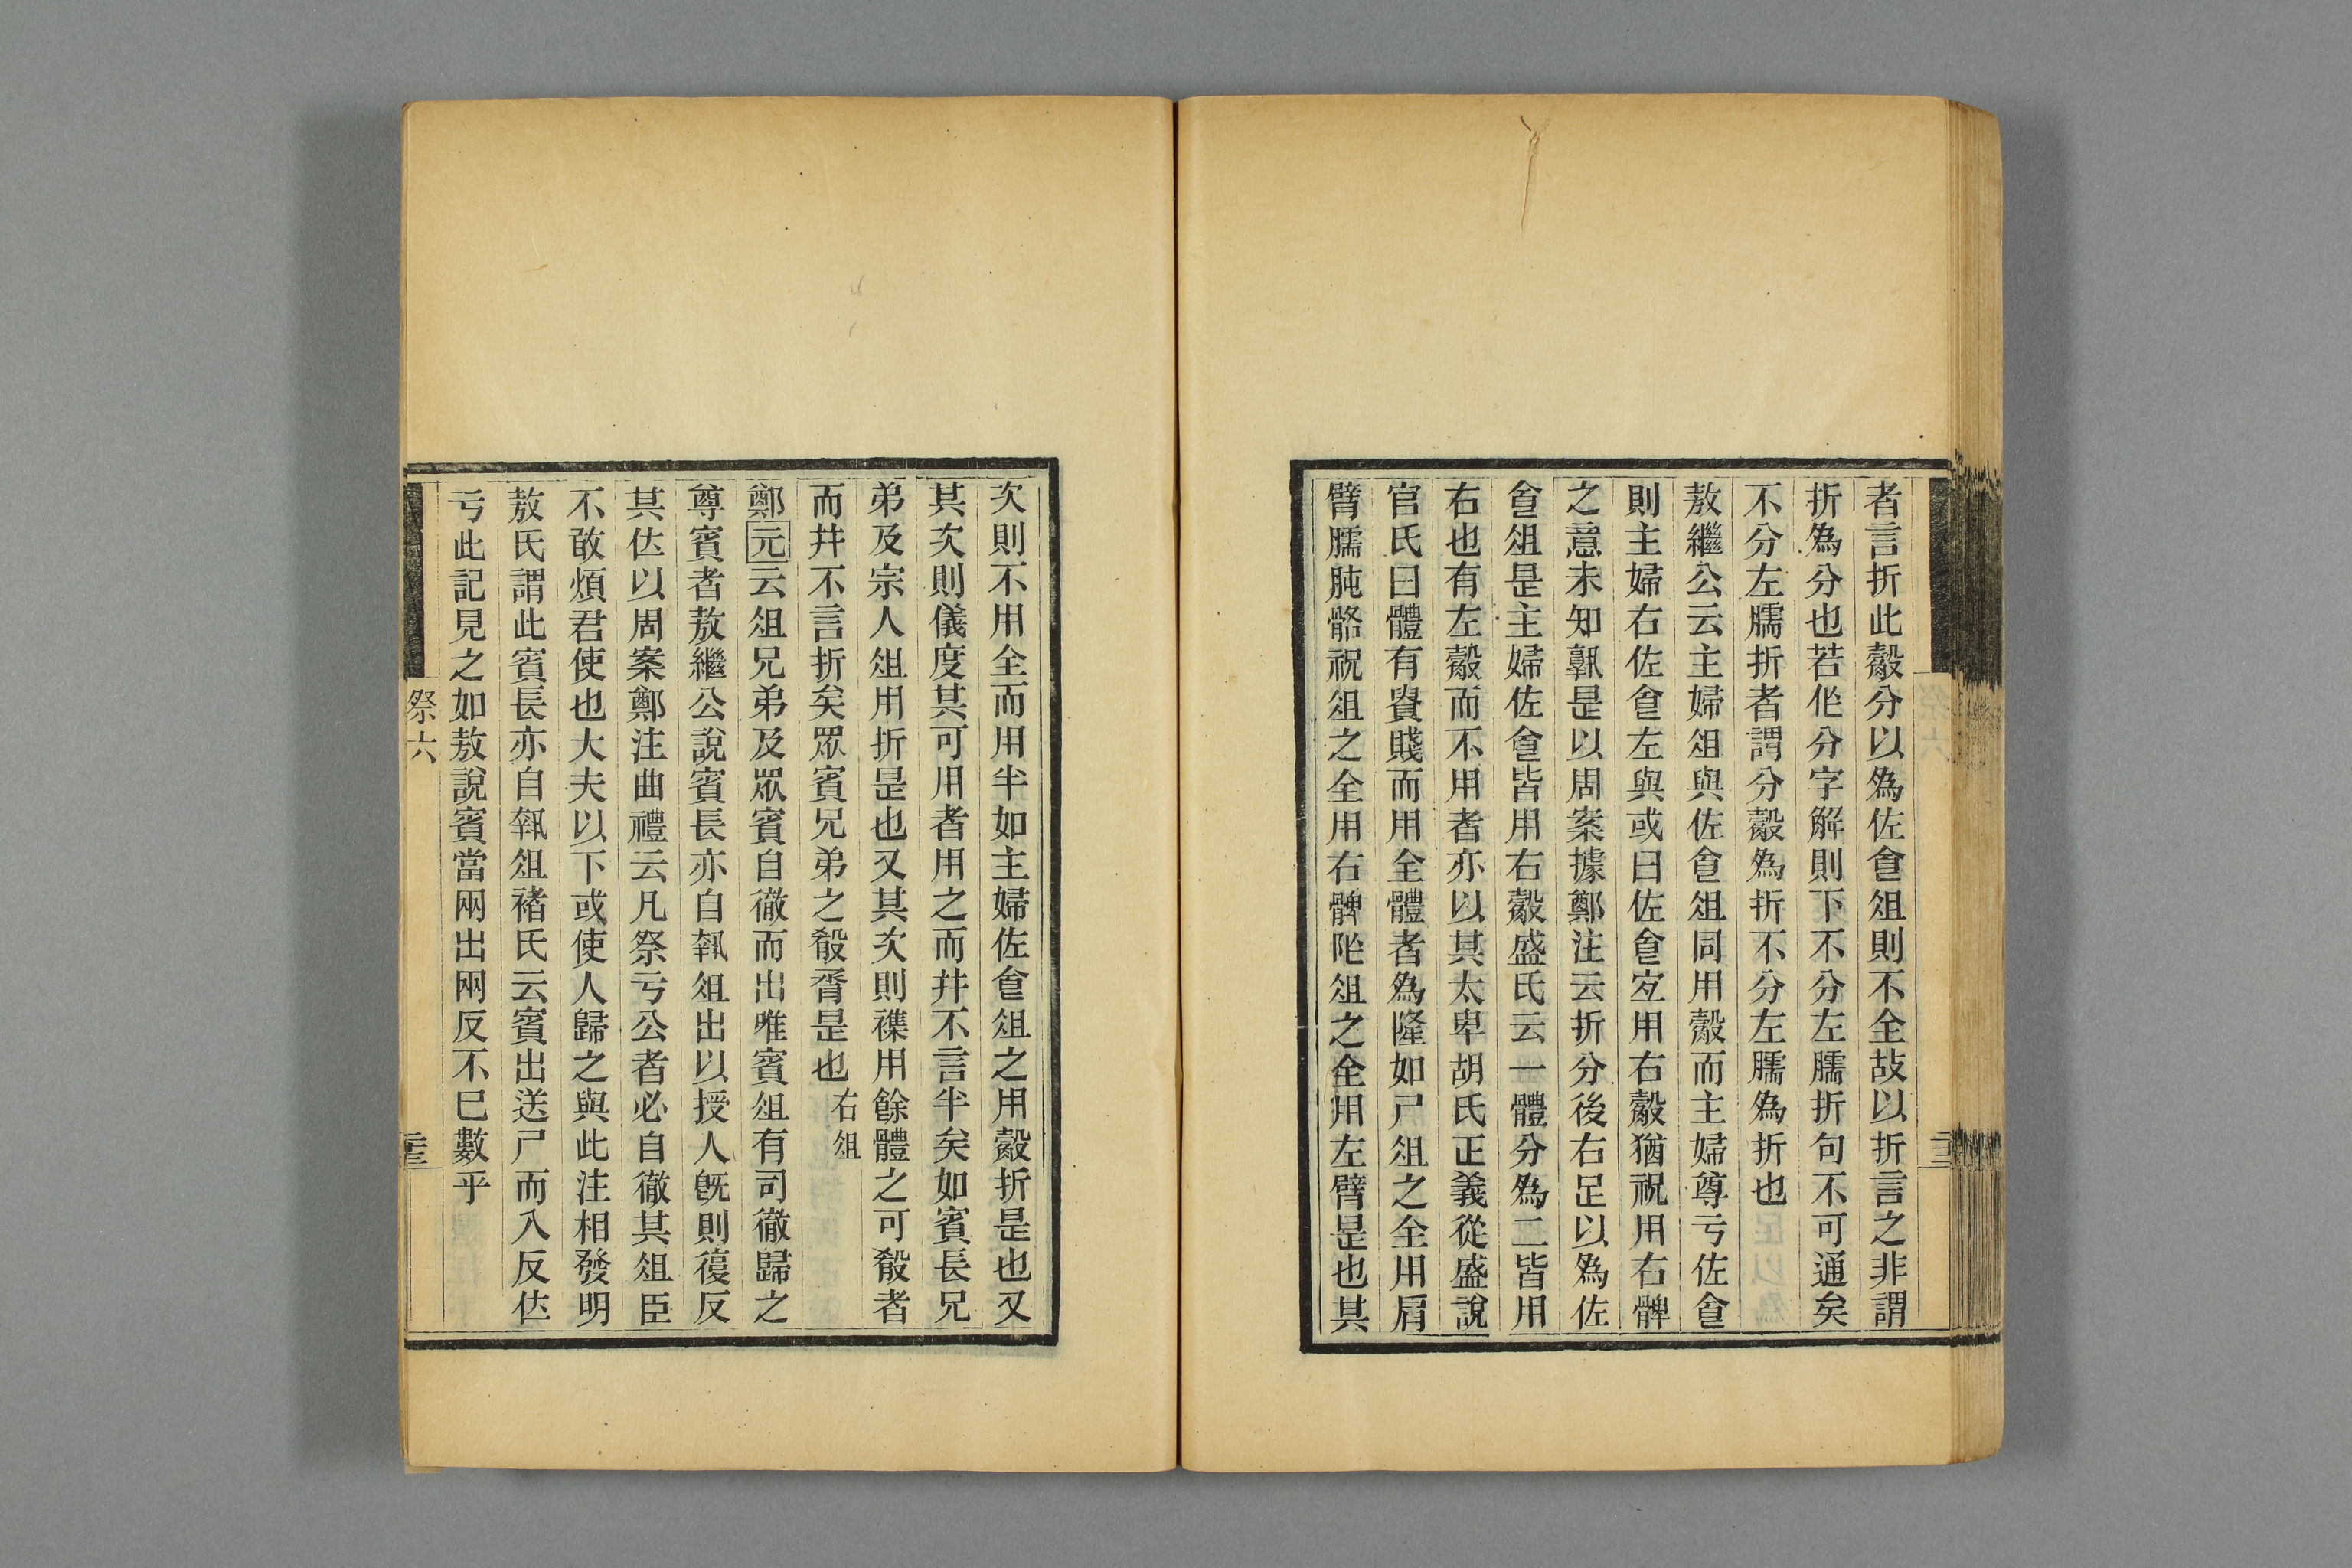 者言折此觳分以爲佐食俎則不全故以折言之非謂
折爲分也若作分字解則下不分左臑折句不可通矣
不分左臑折者謂分觳爲折不分左臑爲折也
敖繼公云主婦俎與佐食俎同用觳而主婦尊亏佐食
則主婦右佐食左與或曰佐食宐用右觳猶祝用右髀
之意未知孰是以周案據鄭注云折分後右足以爲佐
食俎是主婦佐食皆用右觳盛氏云一體分爲二皆用
右也有左觳而不用者亦以其太卑胡氏正義從盛說
官氏曰體有貴賤而用全體者爲隆如尸俎之全用肩
臂臑肫骼祝俎之全用右髀阼俎之全用左臂是也其
次則不用全而用半如主婦佐食俎之用觳折是也又
其次則儀度其可用者用之而并不言半矣如賓長兄
弟及宗人俎用折是也又其次則襍用餘體之可殽者
而并不言折矣眾賓兄弟之殽脀是也右俎
鄭元云俎兄弟及眾賓自徹而出唯賓俎有司徹歸之
尊賓者敖繼公說賓長亦自執俎出以授人旣則復反
其位以周案鄭注曲禮云凡祭亏公者必自徹其俎臣
不敢煩君使也大夫以下或使人歸之與此注相發明
敖氏謂此賓長亦自執俎褚氏云賓出送尸而入反位
亏此記見之如敖說賓當兩出兩反不巳數乎
祭六